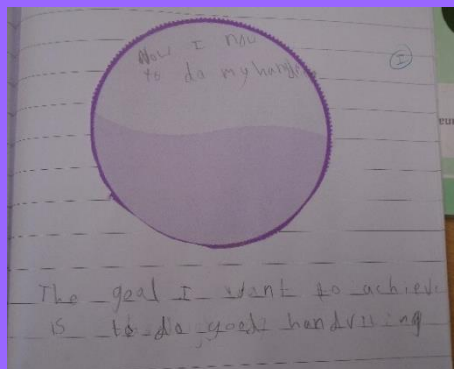 Now I now
to do my handri
I
The goal I want to achiev
is to do good handvriting
eur